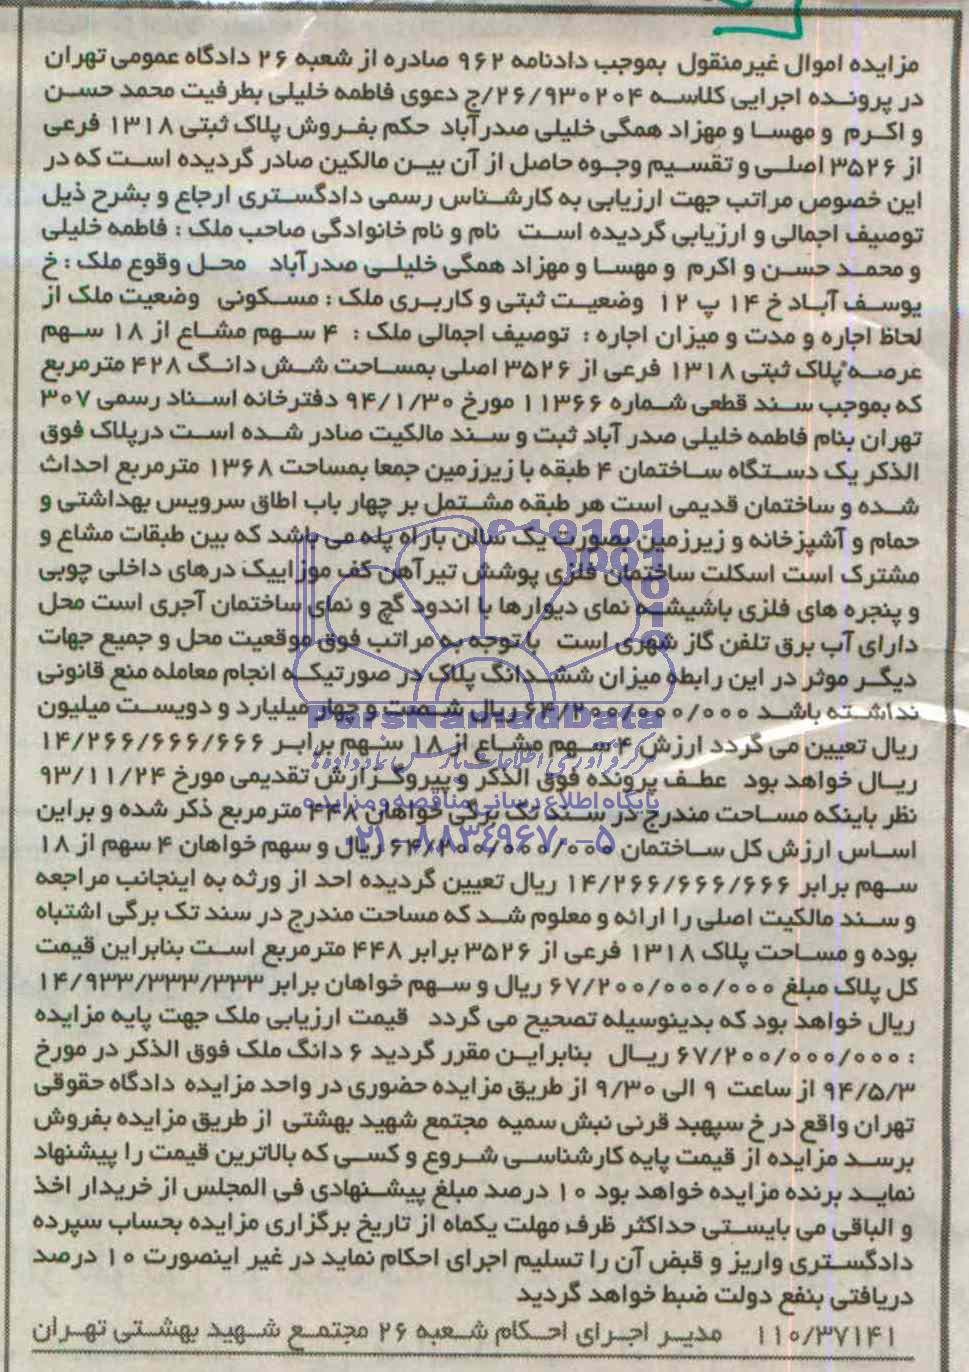 مزایده اموال غیرمنقول بموجب دادنامه ۹۶۲ صادره از شعبه ۲۶ دادگاه عمومی تهران
در پرونده اجرایی کلاسه ۲۶/۹۳۰۲۰۴/ج دعوی فاطمه خلیلی بطرفیت محمد حسن
و اکرم و مهسا و مهزاد همگی خلیلی صدرآباد حکم بفروش پلاک ثبتی ۱۳۱۸ فرعی
از ۳۵۲۶ اصلی و تقسیم وجوه حاصل از آن بین مالکین صادر گردیده است که در
این خصوص مراتب جهت ارزیابی به کارشناس رسمی دادگستری ارجاع و بشرح ذیل
توصیف اجمالی و ارزیابی گردیده است نام و نام خانوادگی صاحب ملک : فاطمه خلیلی
و محمد حسن و اکرم و مهسا و مهزاد همگی خلیلی صدرآباد محل وقوع ملک : خ
یوسف آباد خ ۱۴ پ ۱۲ وضعیت ثبتی و کاربری ملک : مسکونی وضعیت ملک از
لحاظ اجاره و مدت و میزان اجاره : توصیف اجمالی ملک : ۴ سهم مشاع از ۱۸ سهم
عرصه پلاک ثبتی ۱۳۱۸ فرعی از ۳۵۲۶ اصلی بمساحت شش دانگ ۴۲۸ مترمربع
که بموجب سند قطعی شماره ۱۱۳۶۶ مورخ ۹۴/۱/۳۰ دفترخانه اسناد رسمی ۳۰۷
تهران بنام فاطمه خلیلی صدر آباد ثبت و سند مالکیت صادر شده است درپلاک فوق
الذکر یک دستگاه ساختمان ۴ طبقه با زیرزمین جمعا بمساحت ۱۳۶۸ مترمربع احداث
شده و ساختمان قدیمی است هر طبقه مشتمل بر چهار باب اطاق سرویس بهداشتی و
حمام و آشپزخانه و زیرزمین بصورت یک سالن باراه پله می باشد که بین طبقات مشاع و
مشترک است اسکلت ساختمان فلزی پوشش تیرآهن کف موزاییک درهای داخلی چوبی
و پنجره های فلزی باشیشه نمای دیوارها با اندود گچ و نمای ساختمان آجری است محل
دارای آب برق تلفن گاز شهری است با توجه به مراتب فوق موقعیت محل و جمیع جهات
دیگر موثر در این رابطه میزان ششدانگ پلاک در صورتیکه انجام معامله منع قانونی
نداشته باشد ۶۴/۲۰۰/۰۰۰/۰۰۰ ریال شصت و چهار میلیارد و دویست میلیون
ریال تعیین می گردد ارزش ۴ سهم مشاع از ۱۸ سهم برابر ۱۴/۲۶۶/۶۶۶/۶۶۶
ریال خواهد بود عطف پرونده فوق الذکر و پیروگزارش تقدیمی مورخ ۹۳/۱۱/۲۴
نظر باینکه مساحت مندرج در سند تک برگی خواهان ۴۴۸ مترمربع ذکر شده و براین
اساس ارزش کل ساختمان ۶۴/۲۰۰/۰۰۰/۰۰۰ ریال و سهم خواهان ۴ سهم از ۱۸
سهم برابر ۱۴/۲۶۶/۶۶۶/۶۶۶ ریال تعیین گردیده احد از ورثه به اینجانب مراجعه
و سند مالکیت اصلی را ارائه و معلوم شد که مساحت مندرج در سند تک برگی اشتباه
بوده و مساحت پلاک ۱۳۱۸ فرعی از ۳۵۲۶ برابر ۴۴۸ مترمربع است بنابراین قیمت
کل پلاک مبلغ ۶۷/۲۰۰/۰۰۰/۰۰۰ ریال و سهم خواهان برابر ۱۴/۹۳۳/۳۳۳/۳۳۳
ریال خواهد بود که بدینوسیله تصحیح می گردد قیمت ارزیابی ملک جهت پایه مزایده
: ۶۷/۲۰۰/۰۰۰/۰۰۰ ریال بنابراین مقرر گردید ۶ دانگ ملک فوق الذکر در مورخ
۹۴/۵/۳ از ساعت ۹ الی ۹/۳۰ از طریق مزایده حضوری در واحد مزایده دادگاه حقوقی
تهران واقع در خ سپهبد قرنی نبش سمیه مجتمع شهید بهشتی از طریق مزایده بفروش
برسد مزایده از قیمت پایه کارشناسی شروع و کسی که بالاترین قیمت را پیشنهاد
نماید برنده مزایده خواهد بود ۱۰ درصد مبلغ پیشنهادی فی المجلس از خریدار اخذ
و الباقی می بایستی حداکثر ظرف مهلت یکماه از تاریخ برگزاری مزایده بحساب سپرده
دادگستری واریز و قبض آن را تسلیم اجرای احکام نماید در غیر اینصورت ۱۰ درصد
دریافتی بنفع دولت ضبط خواهد گردید
۱۱۰/۳۷۱۴۱ مدیر اجرای احکام شعبه ۲۶ مجتمع شهید بهشتی تهران
ParsNamadData
پایگاه اطلاع رسانی مناقصه و مزایده
۰۲۱-۸۸۳۴۹۶۷۰-۵